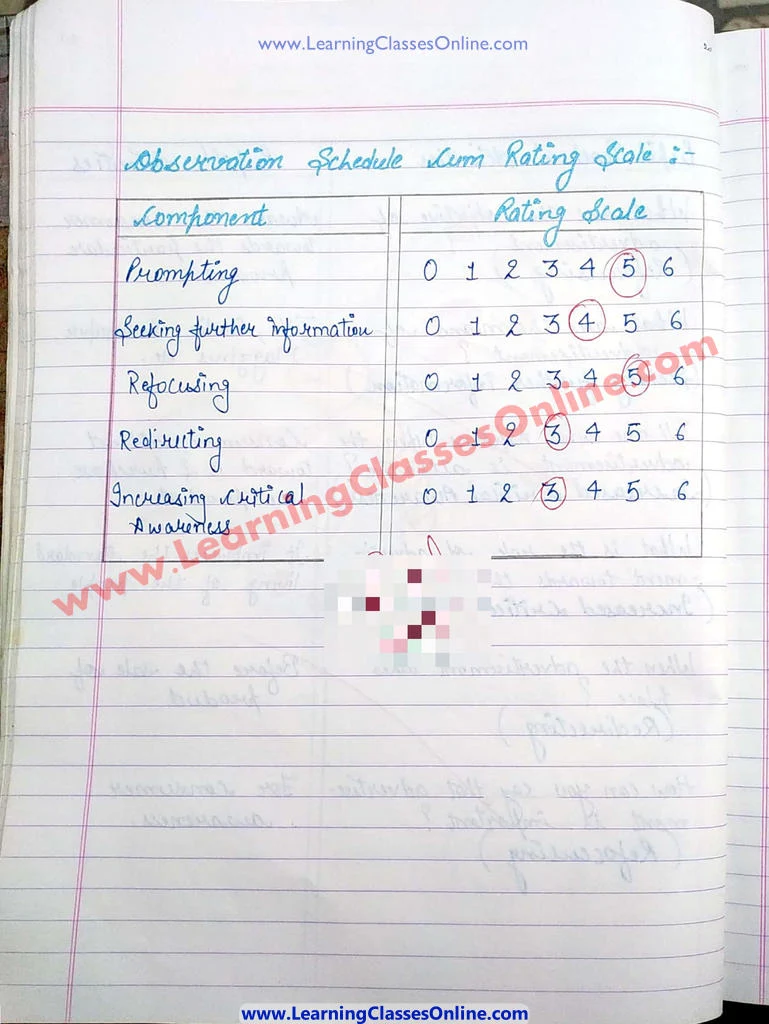 www.LearningClassesOnline.com
Observation Schedule Cum Rating Scale :-
Component Rating Scale
Prompting 0 1 2 3 4 5 6
Seeking further information 0 1 2 3 4 5 6
Refocusing 0 1 2 3 4 5 6
Redirecting 0 1 2 3 4 5 6
Increasing Critical 0 1 2 3 4 5 6
Awareness
www.LearningClassesOnline.com
www.LearningClassesOnline.com